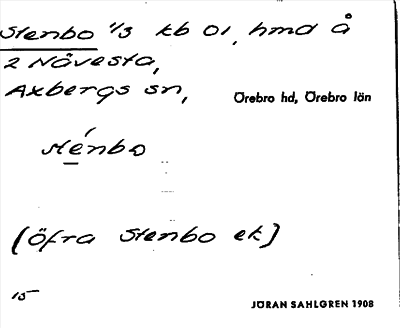 Stenbo 1/3 kb 01, hmd å
2 Nävesta,
Axbergs sn, Örebro hd, Örebro län
sténbo
(Öfra Stenbo ek)
15 JÖRAN SAHLGREN 1908